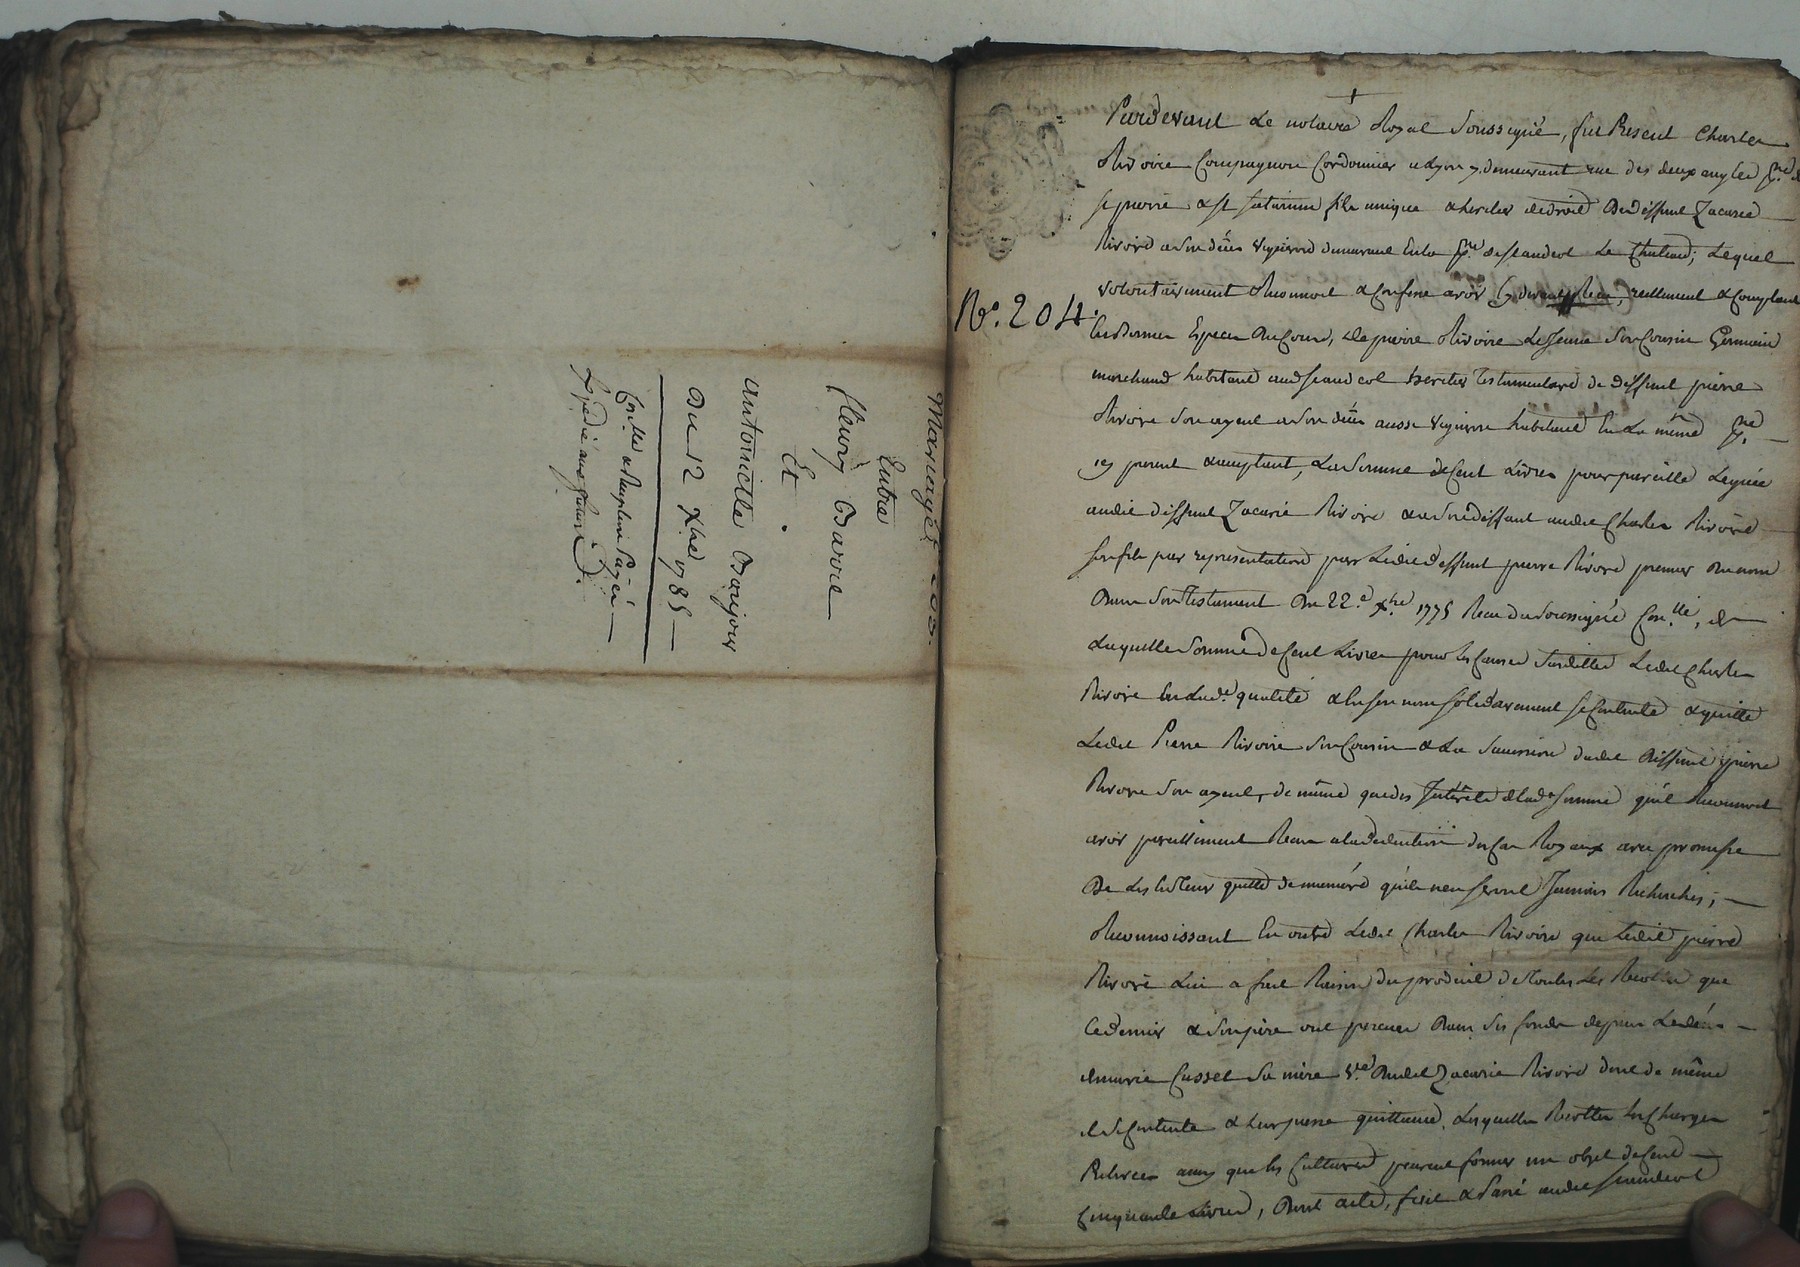 Mariage
Entre
fleury Barre
Et
antoinette Baujour
Du 12 Xbre 1785
Con.lle a Payée
Expédié aux
N.o 204.
Pardevant Le notaire Royal Soussigné, fut Present Charles
Rivoire Compagnon Cordonnier a Lyon y demeurant rue des deux angles psse
st pierre & st saturnin fils unique & heritier de droit De deffunt Zacarie
Rivoire a son décés vigneron demeurant En la psse de st andeol Le Chateau; Lequel
volontairement Reconnoit & Confesse avoir reellement & Comptant
En Bonnes Especes Du Cours, de pierre Rivoire Le Jeune Son Cousin Germain
marchand habitant aud st andeol heritier Testamentaire de deffunt pierre
Rivoire Son ayeul a son décés aussi vigneron habitant En La même psse
icy present & acceptant, La Somme de Cent Livres pour pareille Leguée
audit deffunt Zacarie Rivoire & a son deffaut audit Charles Rivoire
son fils par representation par Ledit deffunt pierre Rivoire premier Du nom
Dans Son Testament Du 22.e Xbre 1775 Recu du Soussigné Con.llé, de
Laquelle Somme de Cent Livres pour les Causes Susdittes Ledit Charles
Rivoire En Lad.e qualité & En son nom solidairement se Contente & quitte
Ledit Pierre Rivoire Son Cousin & La Succession dudit deffunt pierre
Rivoire Son ayeul, de même que des Interets de lad.e somme qu'il Reconnoit
avoir pareillement Recu a la deduction des Royaux avec promesse
De Les En Tenir quitte de maniere qu'ils n'en seront Jamais Recherchés;
Reconnoissant En outre Ledit Charles Rivoire que Ledit pierre
Rivoire Lui a fait Raison du produit de Toutes Les Recoltes que
Ce dernier & Son pere ont percues Dans Ses fonds depuis Le décés
de marie Cusset Sa mère v.e Dudit Zacarie Rivoire dont de même
il se Contente & Leur passe quittance, Lesquelles Recoltes Les Charges
Prelevées ainsy que les Cultures peuvent former un objet de Cent
Cinquante Livres, Dont acte, fait & Passé audit st andeol